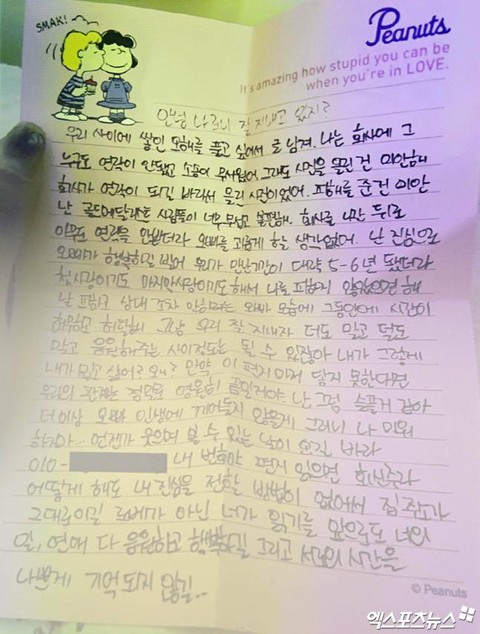 SMAK!
Peanuts
It's amazing how stupid you can be
when you're in LOVE.
안녕 나 잘 지내고 있지?
우리 사이에 쌓인 오해를 풀고 싶어서 글 남겨. 나는 회사에 그
누구도 연락이 안됐고 소송이 무서웠어. 그래도 사진을 올린건 미안해
회사가 연락이 되길 바라서 올린 사진이었어. 피해를 준건 미안
난 골드메달리스트 사람들이 너무 무섭고 불편해. 회사를 나간 뒤로
아무도 연락을 안받더라 오빠를 괴롭게 할 생각없어. 난 진심으로
오빠가 행복하길 빌어 우리가 만난기간이 대략 5-6년 됐더라
첫사랑이기도 마지막사랑이기도 해서 나를 피하지 않았으면 해
난 피하고 상대 조차 안하려는 오빠 모습에 그동안에 시간이
허무하고 허탈해 그냥 우리 잘 지내자 더도 말고 덜도
말고 응원해주는 사이정도는 될 수 있잖아 내가 그렇게
내가 밉고 싫어? 왜? 만약 이 편지마저 닿지 못한다면
우리의 관계는 정말로 영원히 끝일거야 난 그럼 슬플거 같아
더이상 오빠 인생에 끼어들지 않을게 그러니 나 미워
하지마.. 언젠가 웃으며 볼 수 있는 날이 오길 바라
010- 내 번호야 편지 읽으면 회신주라
어떻게 해도 내 진심을 전할 방법이 없어서 집주소가
그대로이길 로베가 아닌 너가 읽기를 앞으로도 너의
일, 연애 다 응원하고 행복하길 그리고 서로의 시간을
나쁘게 기억되지 않길..
© Peanuts
엑스포츠뉴스